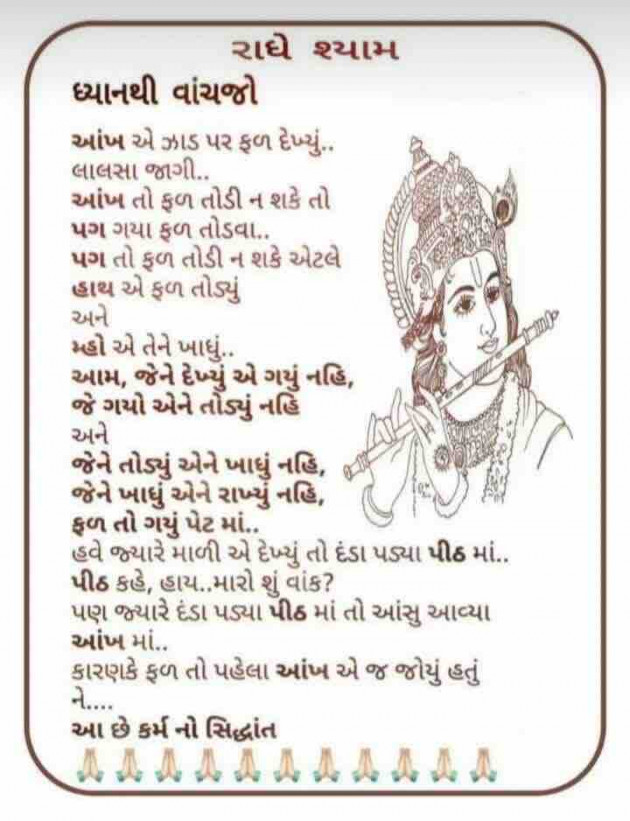 રાધે શ્યામ
ધ્યાનથી વાંચજો
આંખ એ ઝાડ પર ફળ દેખ્યું..
લાલસા જાગી..
આંખ તો ફળ તોડી ન શકે તો
પગ ગયા ફળ તોડવા..
પગ તો ફળ તોડી ન શકે એટલે
હાથ એ ફળ તોડ્યું
અને
મ્હો એ તેને ખાધું..
આમ, જેને દેખ્યું એ ગયું નહિ,
જે ગયો એને તોડ્યું નહિ
અને
જેને તોડ્યું એને ખાધું નહિ,
જેને ખાધું એને રાખ્યું નહિ,
ફળ તો ગયું પેટ માં..
હવે જ્યારે માળી એ દેખ્યું તો દંડા પડ્યા પીઠ માં..
પીઠ કહે, હાય..મારો શું વાંક?
પણ જ્યારે દંડા પડ્યા પીઠ માં તો આંસુ આવ્યા
આંખ માં..
કારણકે ફળ તો પહેલા આંખ એ જ જોયું હતું
ને....
આ છે કર્મ નો સિદ્ધાંત
🙏🏻 🙏🏻 🙏🏻 🙏🏻 🙏🏻 🙏🏻 🙏🏻 🙏🏻 🙏🏻 🙏🏻 🙏🏻